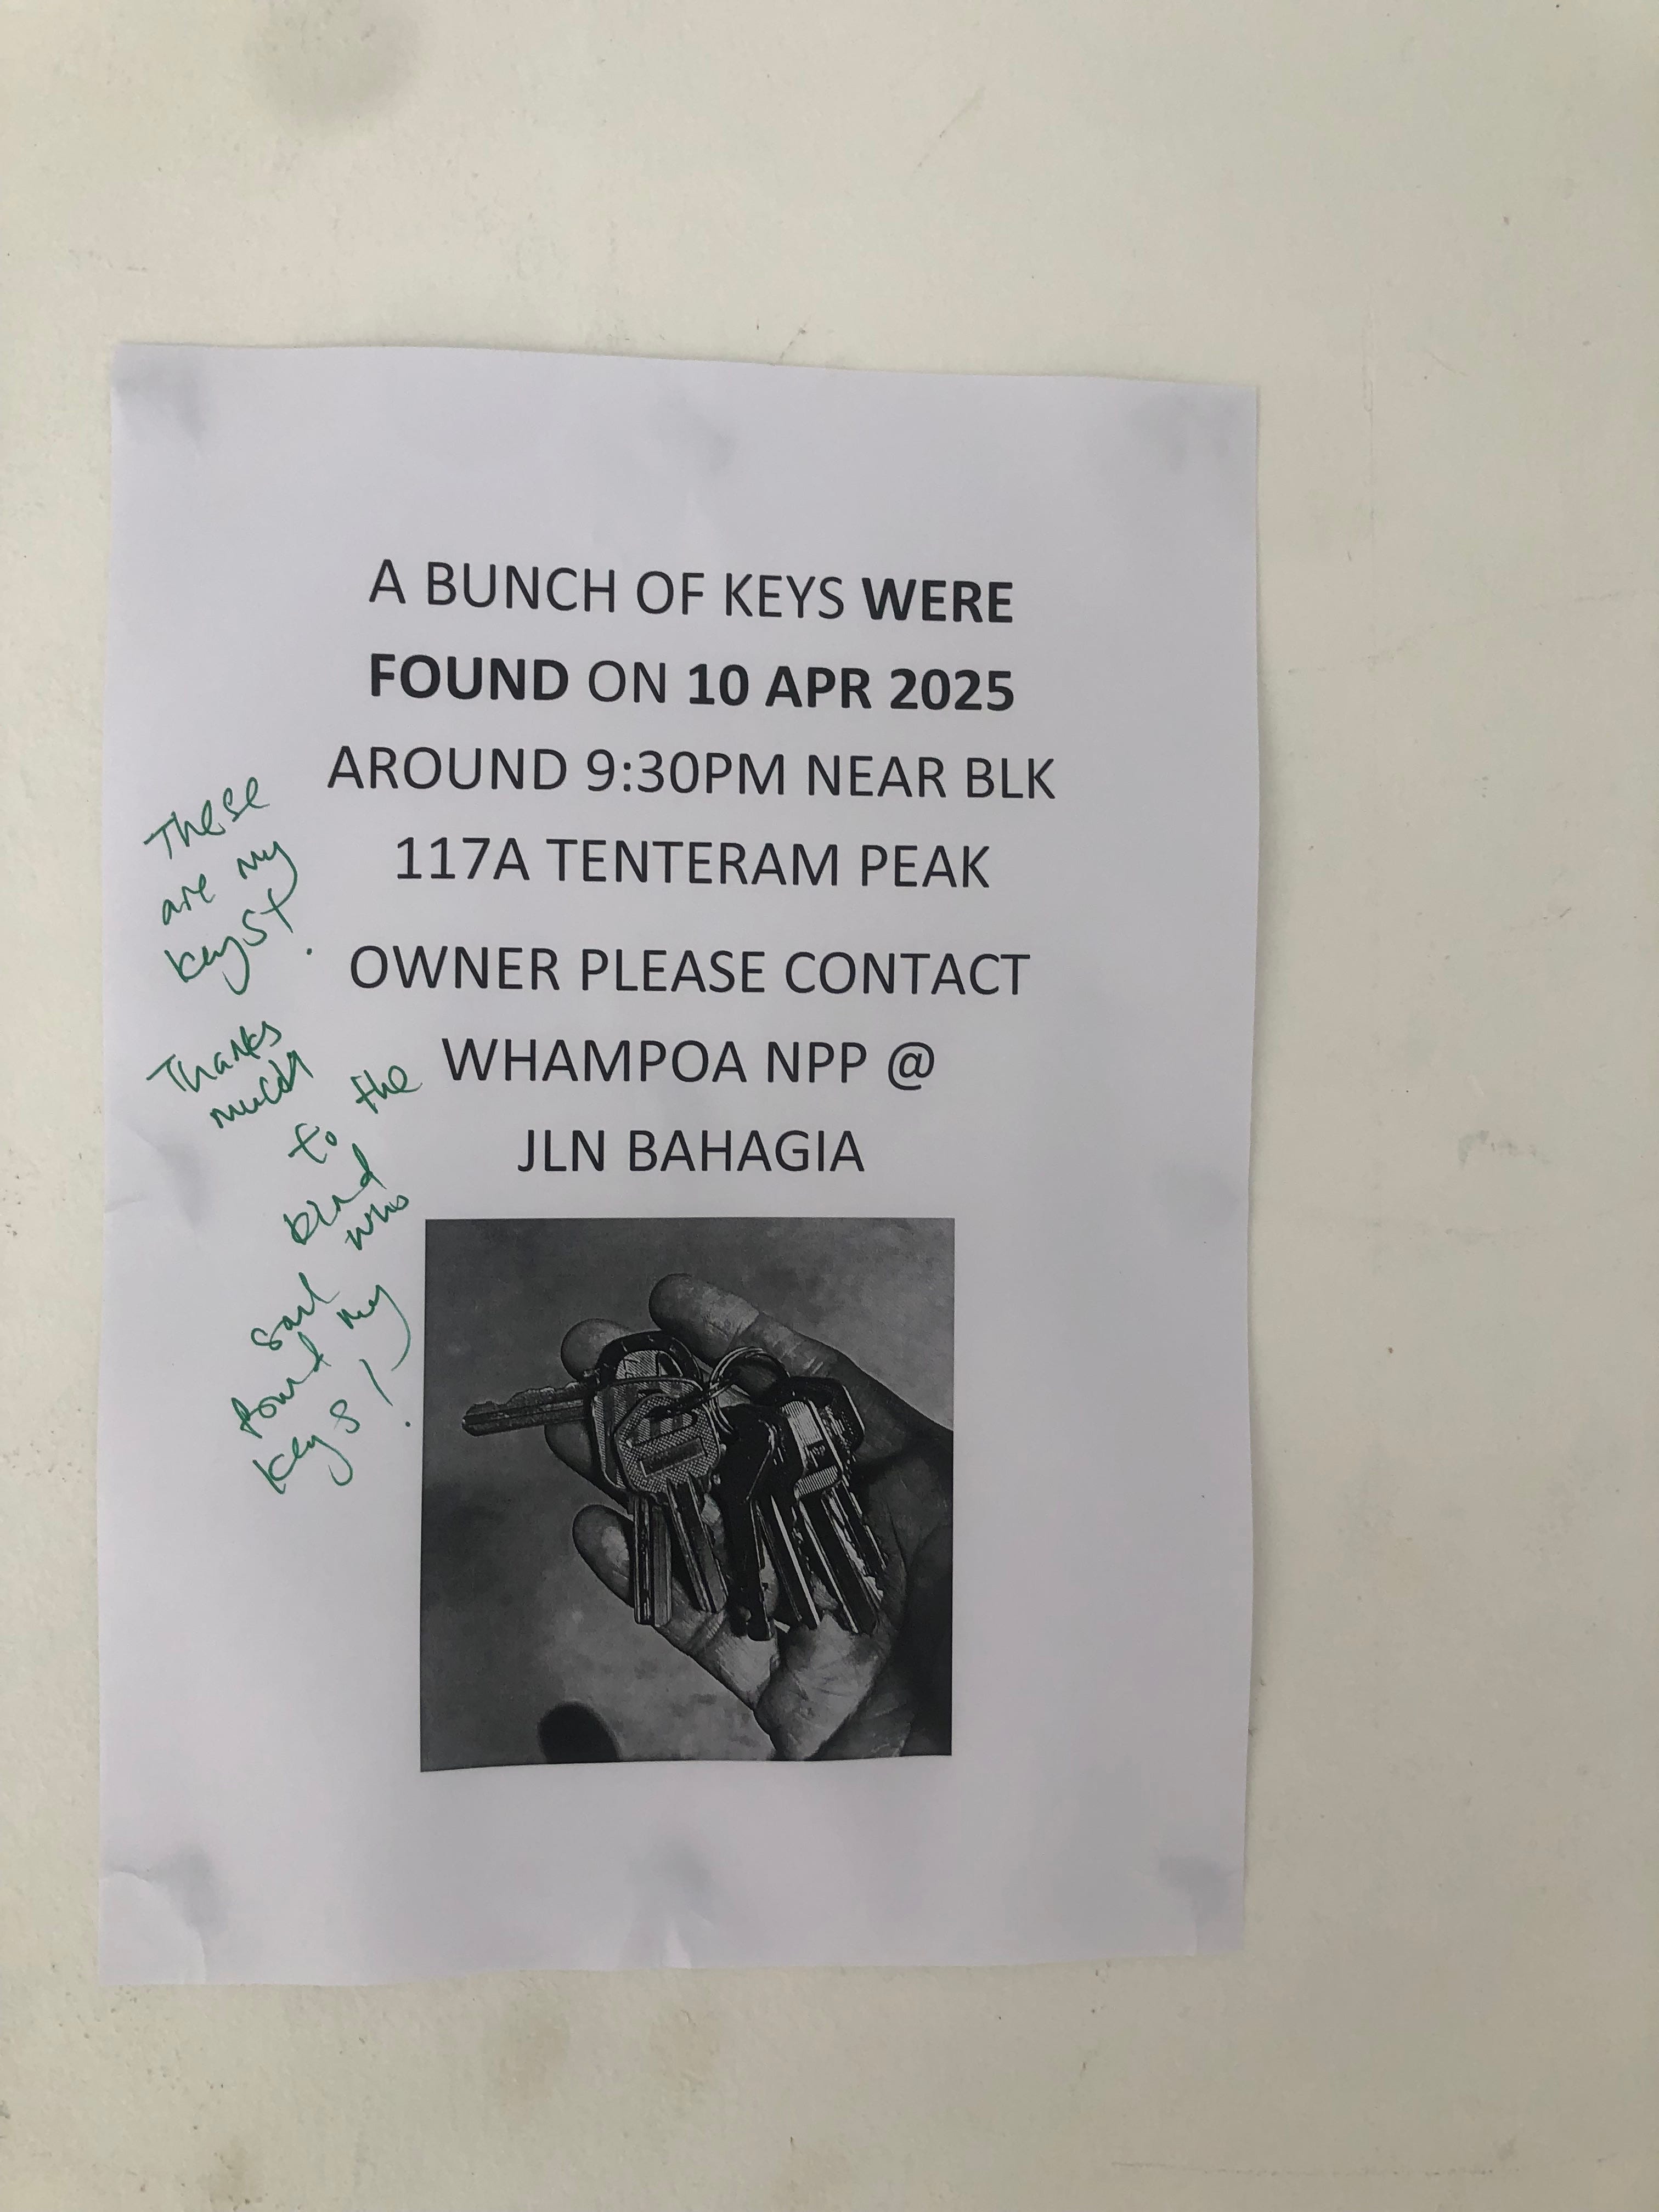 A BUNCH OF KEYS WERE
FOUND ON 10 APR 2025
AROUND 9:30PM NEAR BLK
117A TENTERAM PEAK
OWNER PLEASE CONTACT
WHAMPOA NPP @
JLN BAHAGIA
These
are my
keys!
Thanks
much
to the
kind
soul who
found my
keys!